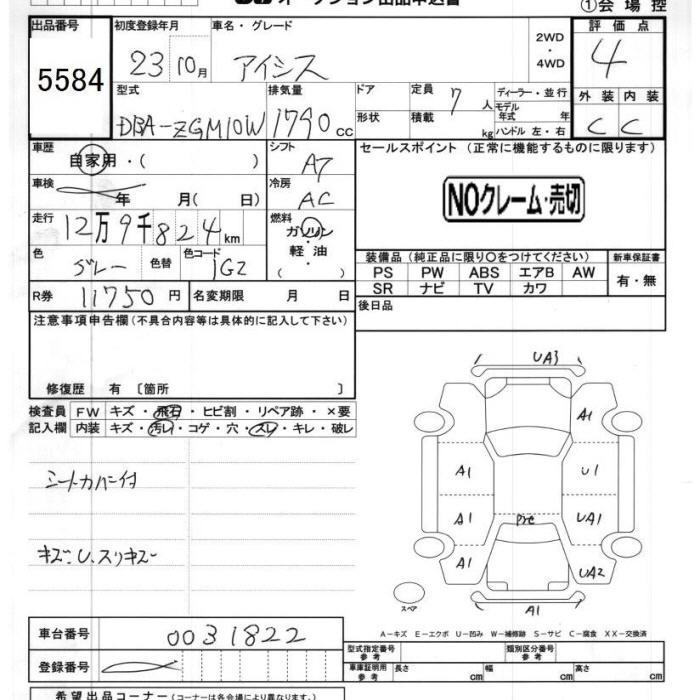 ①会場控
出品番号 初度登録年月 車名・グレード 2WD・4WD 評価点
5584 23 10月 アイシス 4
型式 排気量 ドア 定員 7人 ディーラー・並行 外装 内装
DBA-ZGM10W 1790cc 形状 積載 kg モデル年式 年 ハンドル 左・右 C C
車歴 自家用・( ) シフト A7 セールスポイント (正常に機能するものに限ります)
車検 年 月( 日) 冷房 AC NOクレーム・売切
走行 12万9千824km 燃料 ガソリン・軽油・( )
色 グレー 色替 色コード 1G2 装備品(純正品に限り○をつけてください) 新車保証書
PS PW ABS エアB AW 有・無
SR ナビ TV カワ
R券 11750円 名変期限 月 日 後日品
注意事項申告欄(不具合内容等は具体的に記入して下さい)
修復歴 有 〔箇所 〕
検査員 FW キズ・飛石・ヒビ割・リペア跡・×要
記入欄 内装 キズ・汚レ・コゲ・穴・スレ・キレ・破レ
シートカバー付
キズ、U、スリキズ
UA3
A1
A1 U1
A1 UA1
A1 UA2
A1
スペア
A-キズ E-エクボ U-凹み W-補修跡 S-サビ C-腐食 XX-交換済
車台番号 0031822
登録番号
型式指定番号 参考 類別区分番号 参考
車庫証明用 参考 長さ cm 幅 cm 高さ cm
希望出品コーナー(コーナーは各会場により異なります)